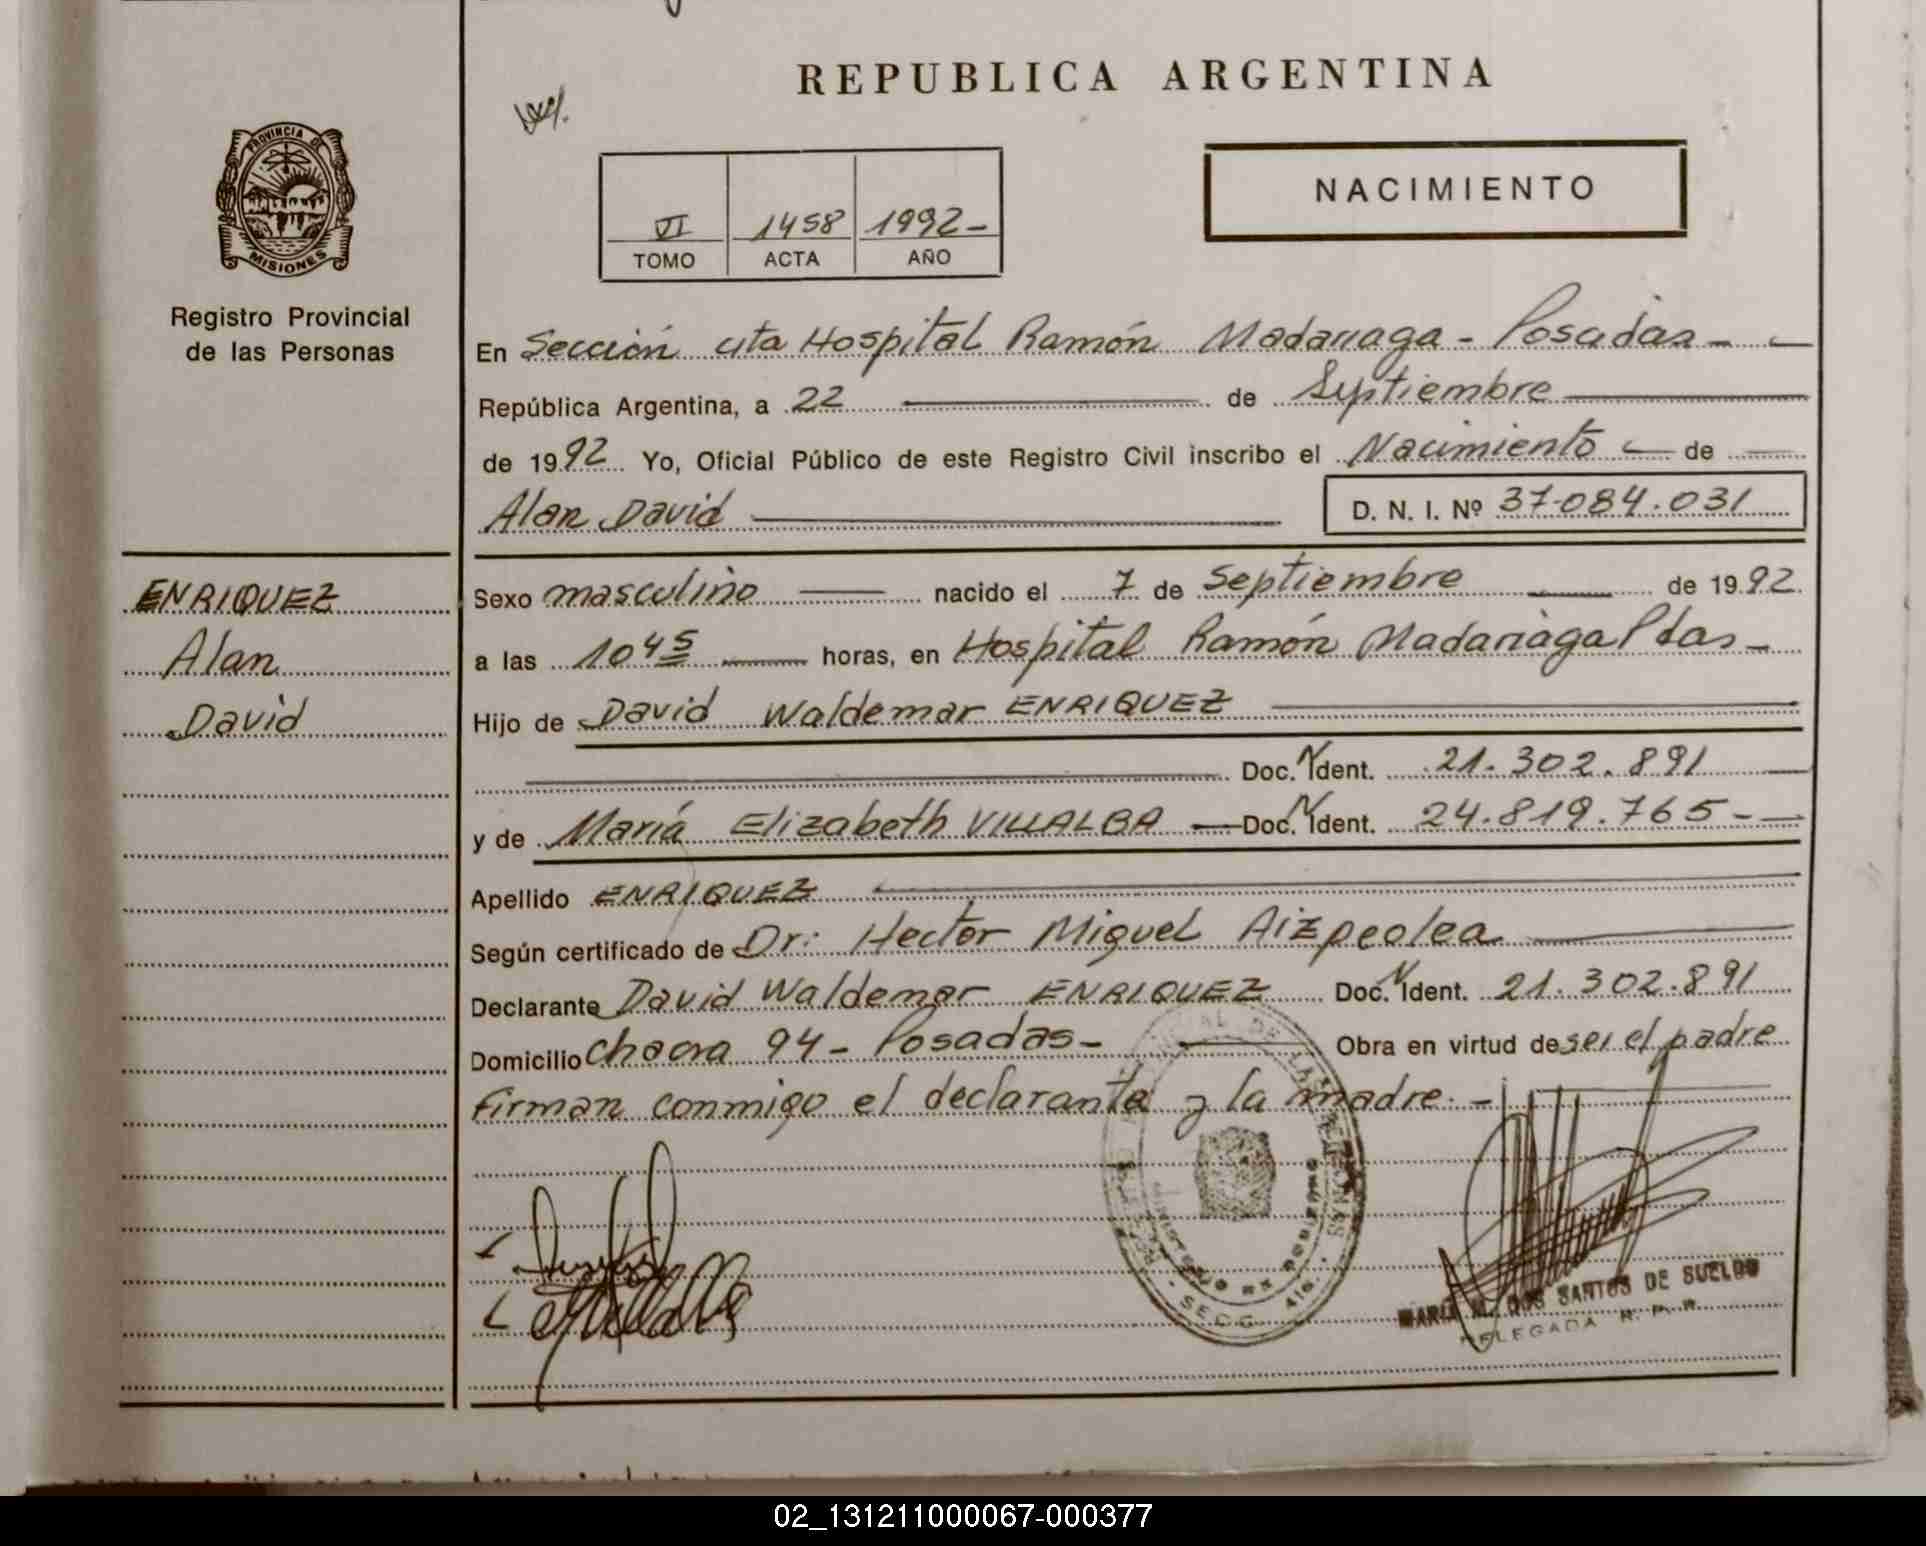 REPUBLICA ARGENTINA
NACIMIENTO
VI 1458 1992-
TOMO ACTA AÑO
PROVINCIA DE
MISIONES
Registro Provincial
de las Personas
En Sección 4ta Hospital Ramón Madariaga - Posadas -
República Argentina, a 22 de Septiembre
de 1992 Yo, Oficial Público de este Registro Civil inscribo el Nacimiento de
Alan David D. N. I. Nº 37.084.031
ENRIQUEZ
Alan
David
Sexo masculino nacido el 7 de Septiembre de 1992
a las 10 45 horas, en Hospital Ramón Madariaga Pdas -
Hijo de David Waldemar ENRIQUEZ
Doc. N Ident. 21.302.891
y de María Elizabeth VILLALBA Doc. N Ident. 24.819.765-
Apellido ENRIQUEZ
Según certificado de Dr: Hector Miguel Aizpeolea
Declarante David Waldemar ENRIQUEZ Doc. N Ident. 21.302.891
Domicilio Chacra 94 - Posadas - Obra en virtud de ser el padre
Firman conmigo el declarante y la madre. -
SECC. 4ta.
MARIA M. DOS SANTOS DE SUELDO
DELEGADA R. P. P.
02_131211000067-000377